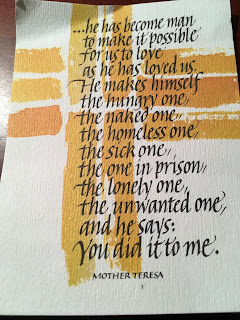 ...he has become man
to make it possible
for us to love
as he has loved us.
He makes himself
the hungry one,
the naked one,
the homeless one,
the sick one,
the one in prison,
the lonely one,
the unwanted one,
and he says:
You did it to me.
MOTHER TERESA